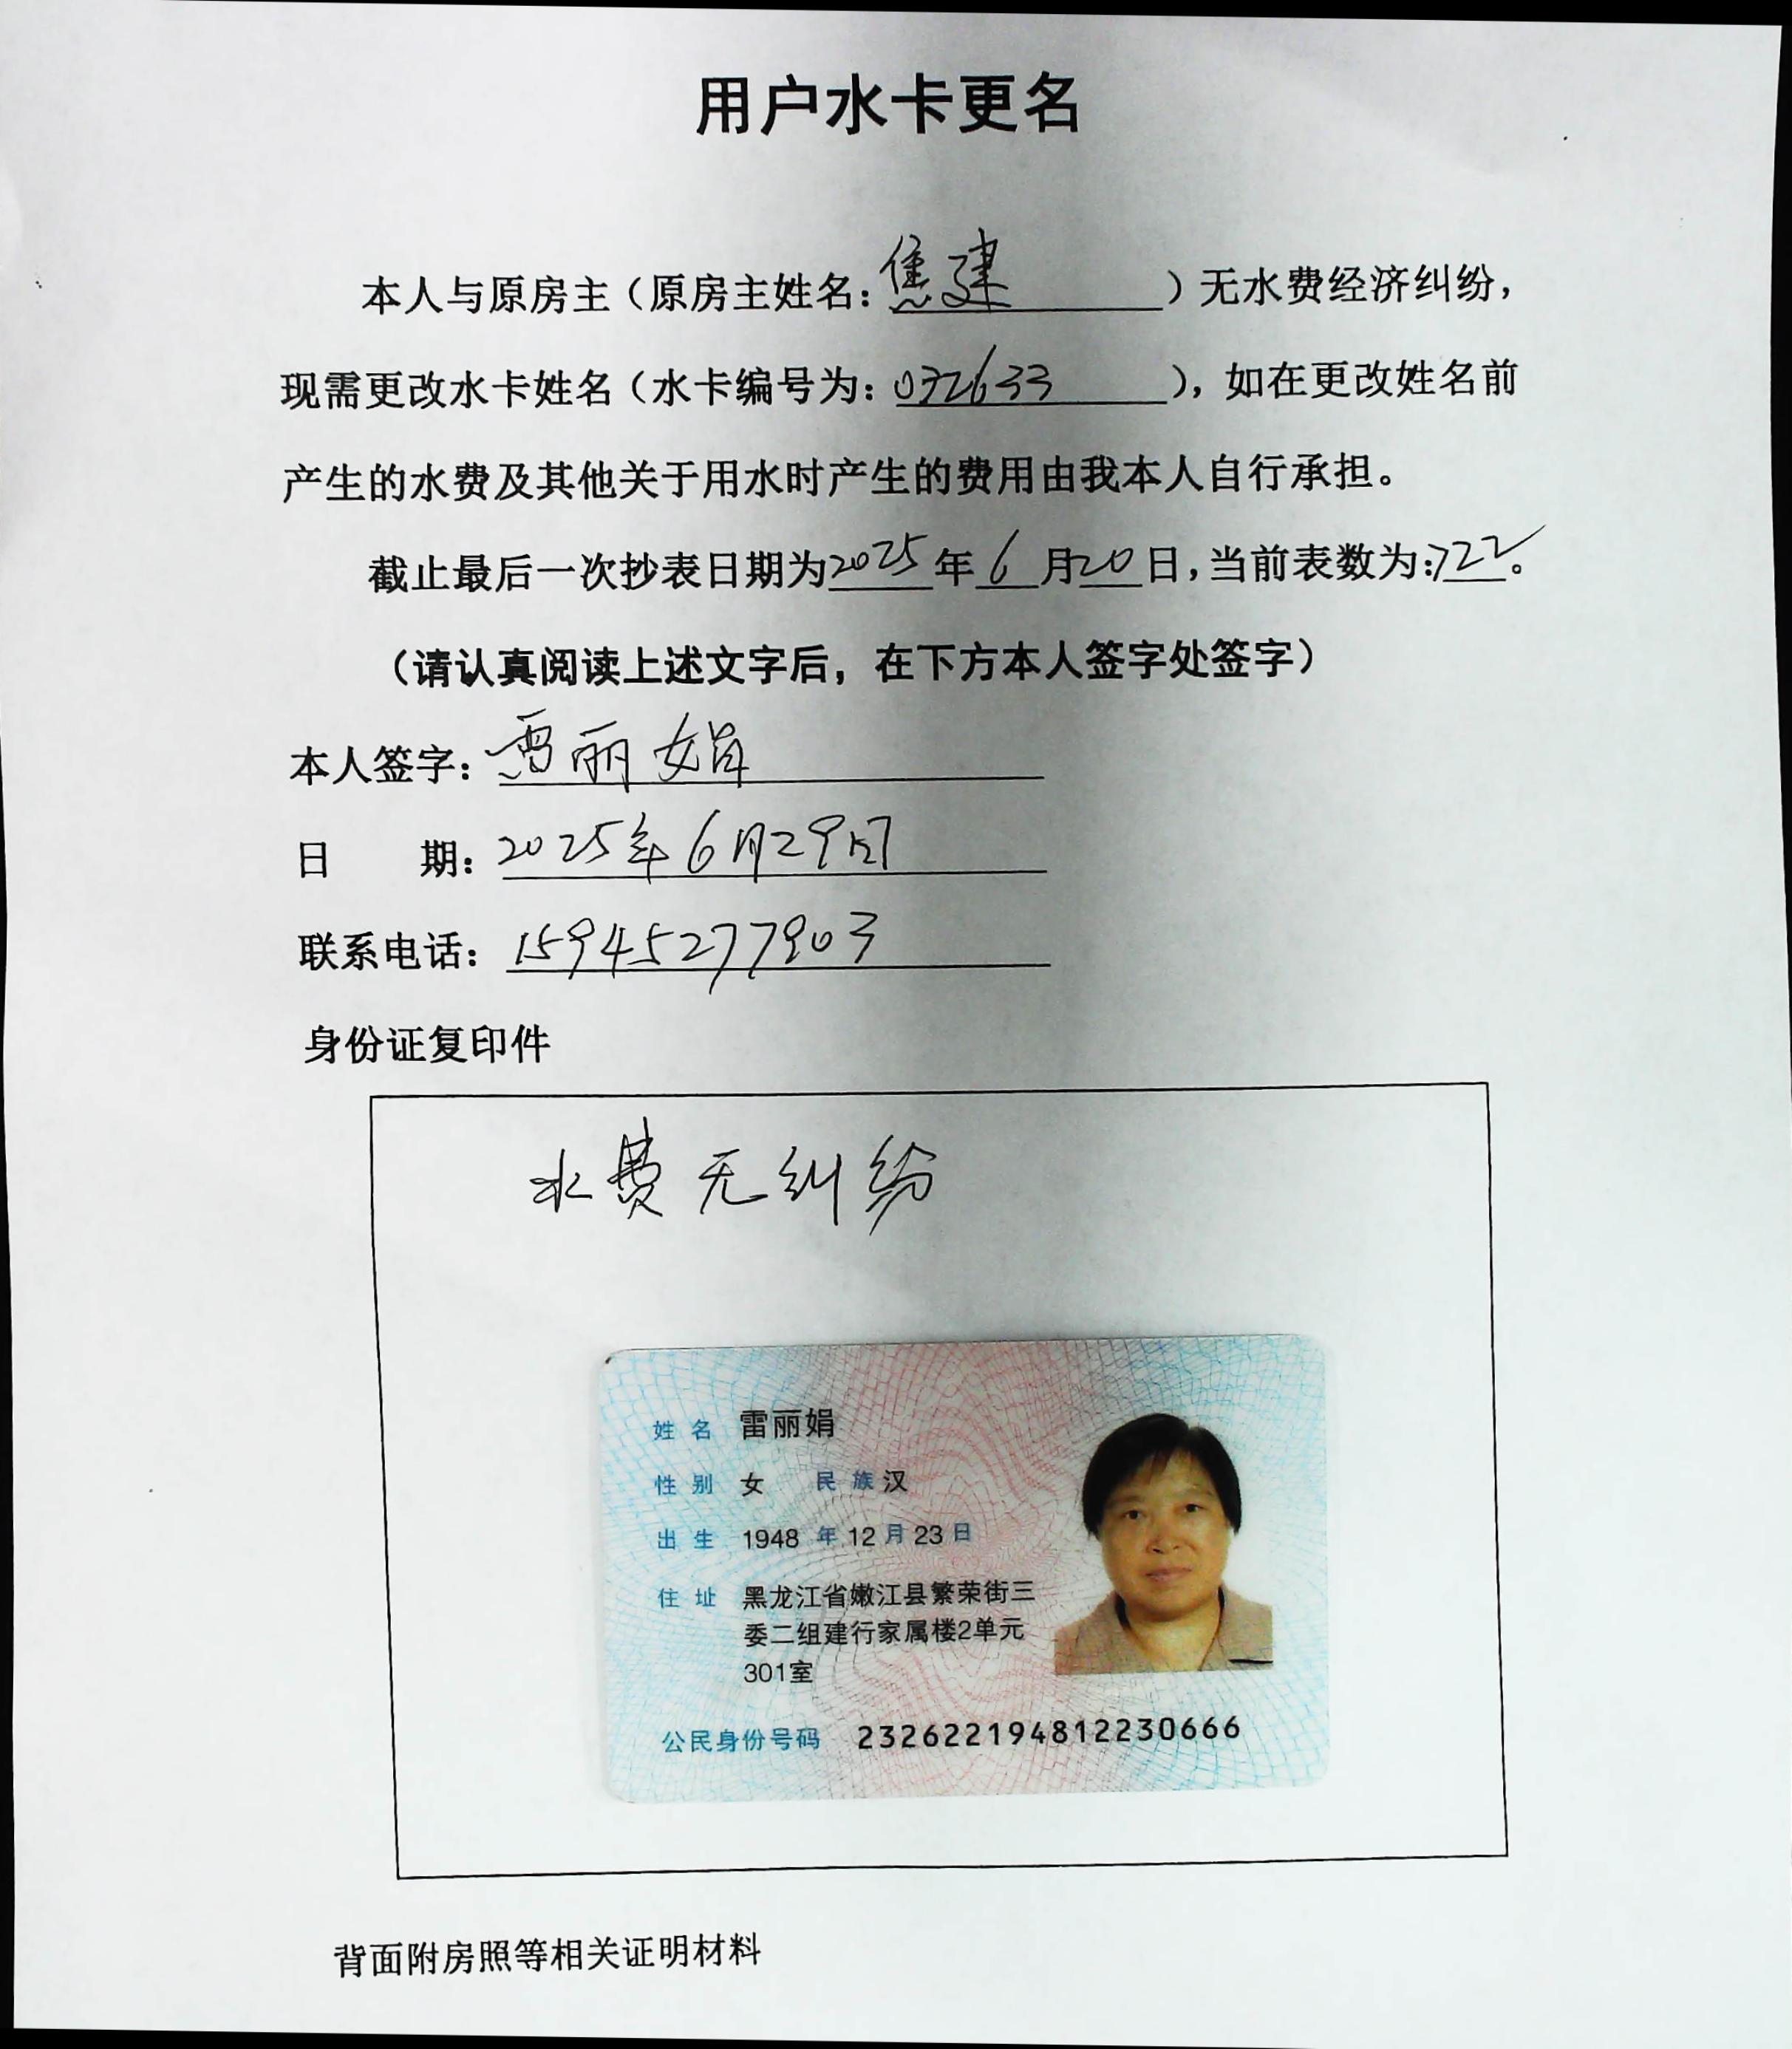 用户水卡更名
本人与原房主（原房主姓名：焦建）无水费经济纠纷，
现需更改水卡姓名（水卡编号为：032633），如在更改姓名前
产生的水费及其他关于用水时产生的费用由我本人自行承担。
截止最后一次抄表日期为2025年6月20日，当前表数为：722。
（请认真阅读上述文字后，在下方本人签字处签字）
本人签字：雷丽娟
日 期：2025年6月29日
联系电话：15945277903
身份证复印件
水费无纠纷
姓名 雷丽娟
性别 女 民族 汉
出生 1948 年 12 月 23 日
住址 黑龙江省嫩江县繁荣街三
委二组建行家属楼2单元
301室
公民身份号码 232622194812230666
背面附房照等相关证明材料